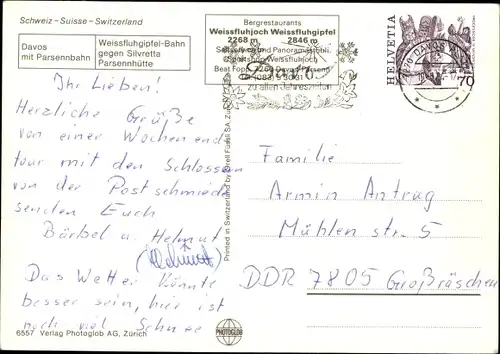 Schweiz - Suisse - Switzerland
Davos
mit Parsennbahn
Weissfluhgipfel-Bahn
gegen Silvretta
Parsennhütte
Bergrestaurants
Weissfluhjoch Weissfluhgipfel
2268 m 2846 m
Selbstbedienung und Panoramastübli
Sportshop Weissfluhjoch
Beat 7260 Davos
zu allen Jahreszeiten
HELVETIA
70
DAVOS
Ihr Lieben!
Herzliche Grüße
von einer Wochenend
tour mit den Schlossern
von der Postschmiede
senden Euch
Bärbel u. Helmut
(Helmut)
Das Wetter könnte
besser sein, hier ist
noch viel Schnee
Printed in Switzerland by Orell Füssli SA, Zürich
Familie
Armin Antrag
Mühlen str. 5
DDR 7805 Großräschen
6557 Verlag Photoglob AG, Zürich
PHOTOGLOB